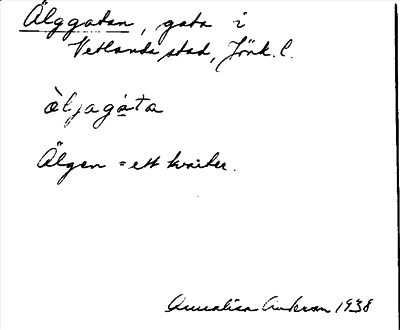 Älggatan, gata i
Vetlanda stad, Jönk. l.
òljagáta
Älgen = ett kvarter.
Annalisa Anderson 1938